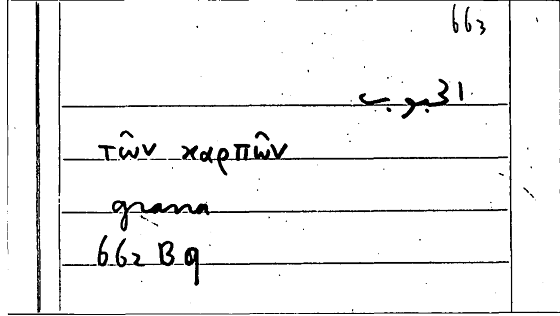 663
الحبوب
τῶν καρπῶν
grana
662 B 9